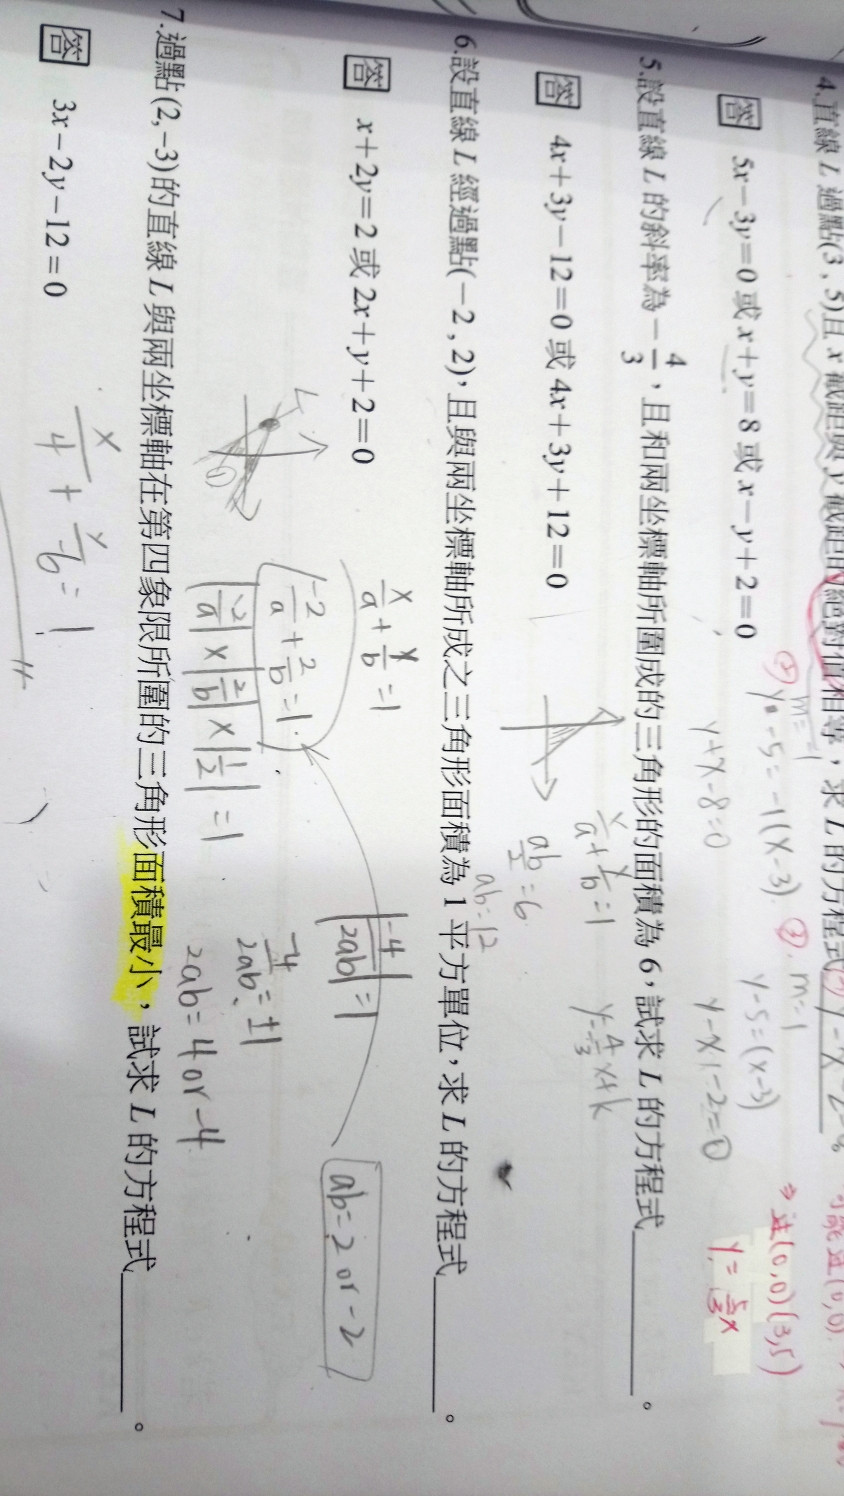 4.直線 L 過點(3 , 5)且 x 截距與 y 截距的絕對值相等,求 L 的方程式
答 5x－3y＝0 或 x＋y＝8 或 x－y＋2＝0
m=-1
y-5=-1(x-3)
y+x-8=0
②. m=1
y-5=(x-3)
y-x1-2=0
⇒ 过(0,0)(3,5)
y=5/3 x
5.設直線 L 的斜率為－4/3,且和兩坐標軸所圍成的三角形的面積為 6,試求 L 的方程式________。
答 4x＋3y－12＝0 或 4x＋3y＋12＝0
x/a+y/b=1
ab/2=6
ab=12
6.設直線 L 經過點(－2 , 2),且與兩坐標軸所成之三角形面積為 1 平方單位,求 L 的方程式________。
答 x＋2y＝2 或 2x＋y＋2＝0
L
①
x/a+y/b=1
-2/a+2/b=1
|-2/a|×|2/b|×|1/2|=1
|-4/2ab|=1
-4/2ab=±1
2ab=4 or -4
ab=2 or -2
7.過點(2,－3)的直線 L 與兩坐標軸在第四象限所圍的三角形面積最小,試求 L 的方程式________。
答 3x－2y－12＝0
x/4+y/-6=1